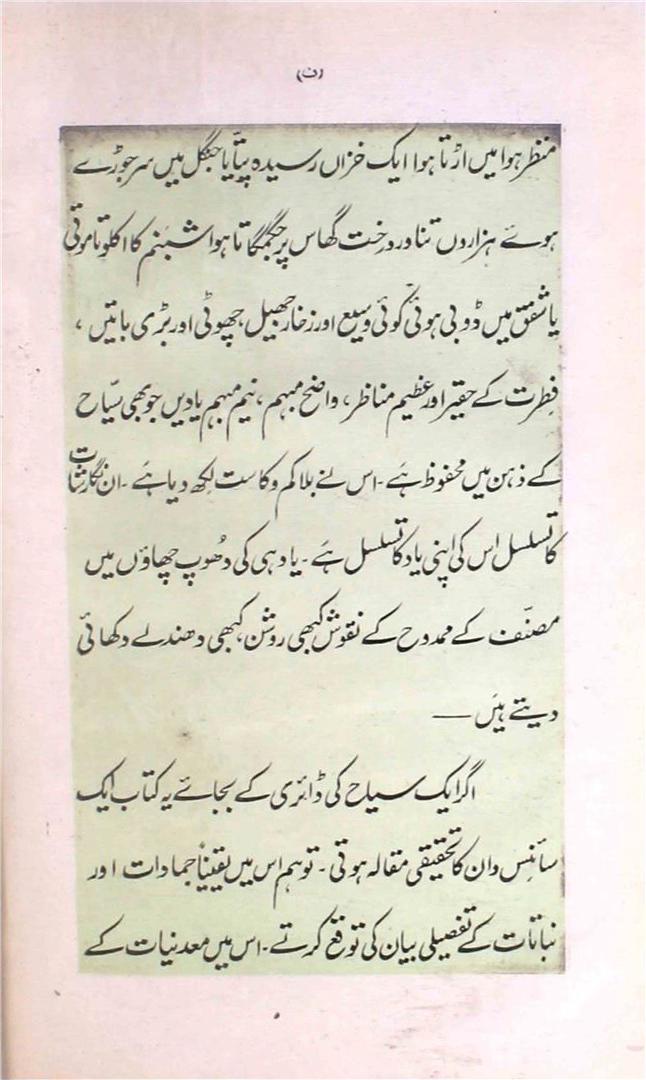 (ن)
منظر ہوا میں اڑتا ہوا ایک خزاں رسیدہ پتّا یا جنگل میں سر جوڑے
ہوئے ہزاروں تناور درخت گھاس پر جگمگاتا ہوا شبنم کا اکلوتا موتی
یا شفق میں ڈوبی ہوئی کوئی وسیع اور زخار جھیل، چھوٹی اور بڑی باتیں،
فطرت کے حقیر اور عظیم مناظر، واضح مبہم، نیم مبہم یادیں جو بھی سیّاح
کے ذہن میں محفوظ ہے۔ اس نے بلا کم و کاست لکھ دیا ہے۔ ان نگارشات
کا تسلسل اس کی اپنی یاد کا تسلسل ہے۔ یاد ہی کی دُھوپ چھاؤں میں
مصنّف کے ممدوح کے نقوش کبھی روشن، کبھی دھندلے دکھائی
دیتے ہیں —
اگر ایک سیاح کی ڈائری کے بجائے یہ کتاب ایک
سائنس دان کا تحقیقی مقالہ ہوتی۔ تو ہم اس میں یقیناً جمادات اور
نباتات کے تفصیلی بیان کی توقع کرتے۔ اس میں معدنیات کے